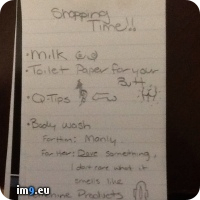 Shopping
Time!!
• Milk
• Toilet Paper for your
Butt
• Q-Tips
• Body wash
For Him: Manly.
For Her: Dove something,
I don't care what it
smells like
Products
im9.eu